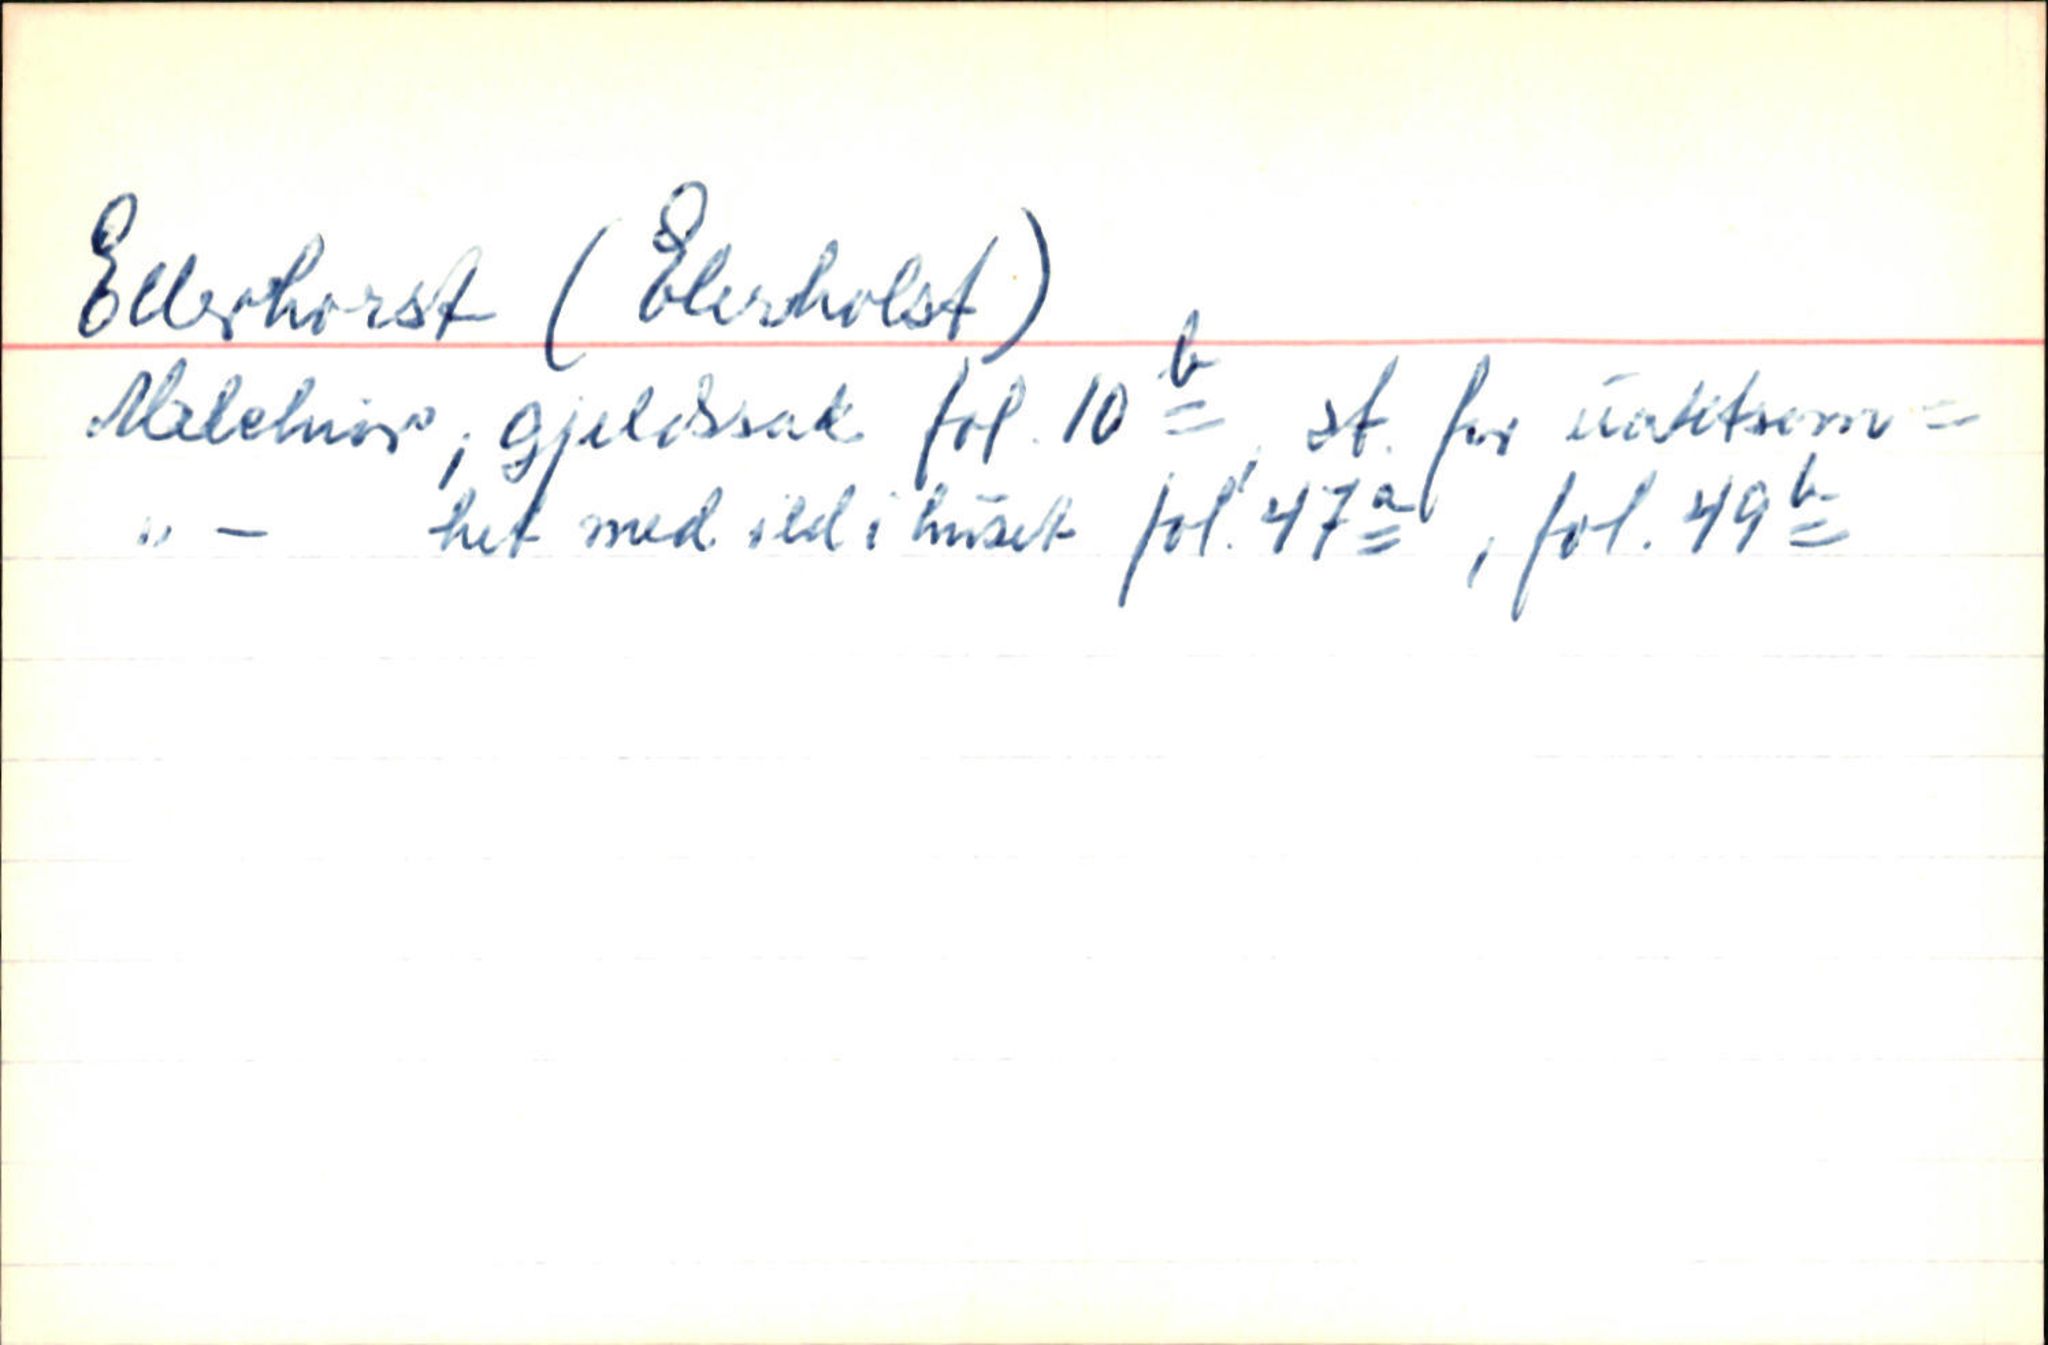 Ellerhorst (Elerholst)
Melchior, gjeldssak fol. 10 b, st. for uaktsom=
" — het med ild i huset fol. 47 a, fol. 49 b